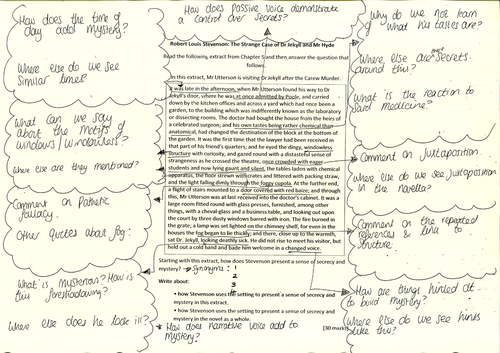 How does the time of
day add mystery?
Where else do we see
similar times?
How does passive voice demonstrate
a control over secrets?
Why do we not learn
of what his tastes are?
Where else are there secrets
around this?
What is the reaction to
said medicine?
Robert Louis Stevenson: The Strange Case of Dr Jekyll and Mr Hyde
Read the following extract from Chapter 5 and then answer the question that
follows.
In this extract, Mr Utterson is visiting Dr Jekyll after the Carew Murder.
It was late in the afternoon, when Mr Utterson found his way to Dr
Jekyll's door, where he was at once admitted by Poole, and carried
down by the kitchen offices and across a yard which had once been a
garden, to the building which was indifferently known as the laboratory
or dissecting rooms. The doctor had bought the house from the heirs of
a celebrated surgeon; and his own tastes being rather chemical than
anatomical, had changed the destination of the block at the bottom of
the garden. It was the first time that the lawyer had been received in
that part of his friend's quarters; and he eyed the dingy, windowless
structure with curiosity, and gazed round with a distasteful sense of
strangeness as he crossed the theatre, once crowded with eager
students and now lying gaunt and silent, the tables laden with chemical
apparatus, the floor strewn with crates and littered with packing straw,
and the light falling dimly through the foggy cupola. At the further end,
a flight of stairs mounted to a door covered with red baize; and through
this, Mr Utterson was at last received into the doctor's cabinet. It was a
large room fitted round with glass presses, furnished, among other
things, with a cheval-glass and a business table, and looking out upon
the court by three dusty windows barred with iron. The fire burned in
the grate; a lamp was set lighted on the chimney shelf, for even in the
houses the fog began to lie thickly; and there, close up to the warmth,
sat Dr. Jekyll, looking deathly sick. He did not rise to meet his visitor, but
held out a cold hand and bade him welcome in a changed voice.
Starting with this extract, how does Stevenson present a sense of secrecy and
mystery? → synonyms: 1
2
3
4
Write about:
• how Stevenson uses the setting to present a sense of secrecy and
mystery in this extract.
• how Stevenson uses the setting to present a sense of secrecy and
mystery in the novel as a whole.
[30 marks]
What can we say
about the motifs of
windows / windowless?
Where else are they mentioned?
Comment on Pathetic
fallacy.
Other quotes about fog:
What is mysterious? How is
this foreshadowing?
Where else does he look ill?
How does narrative voice add to
mystery?
Comment on Juxtaposition.
Where else do we see juxtaposition
in the novella?
Comment on the repeated
references & link to
structure.
How are things hinted at
to build mystery?
Where else do we see hints
like this?